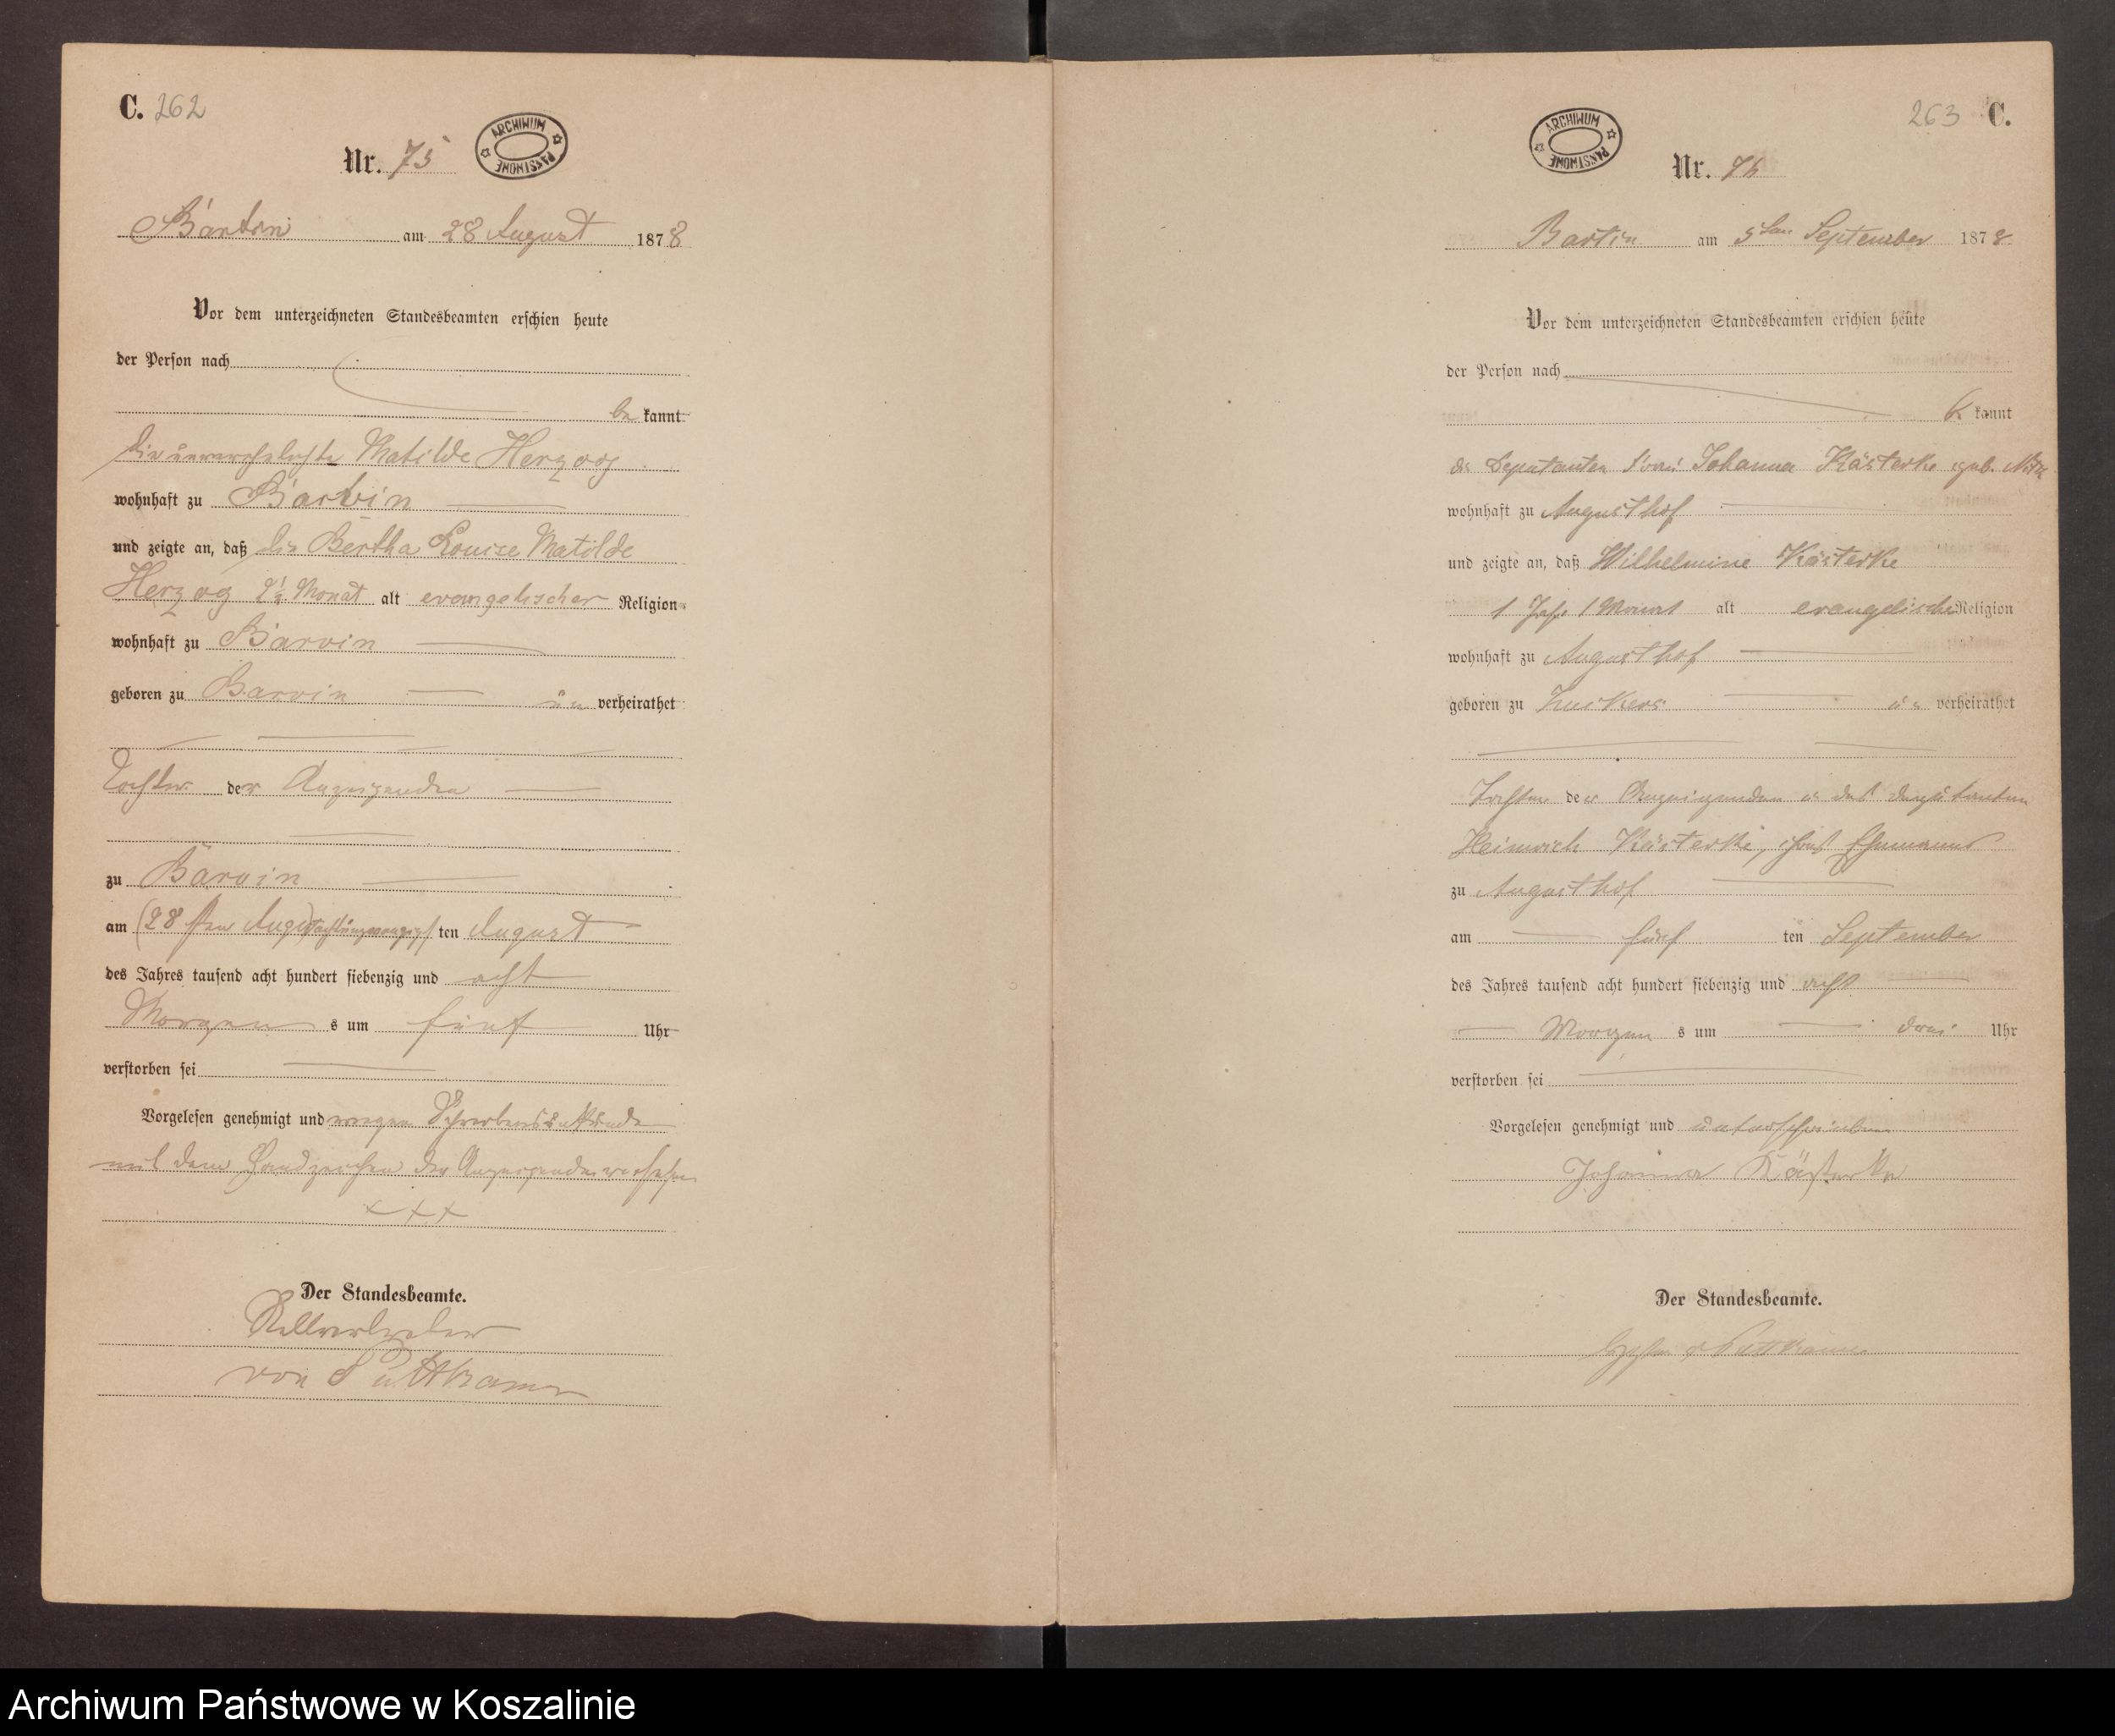 C. 262
Nr. 75
ARCHIWUM PAŃSTWOWE
Bartin am 28 August 1878
Vor dem unterzeichneten Standesbeamten erschien heute
der Person nach
be kannt
die unverehelichte Matilde Herzog
wohnhaft zu Barvin
und zeigte an, daß die Bertha Louise Matilde
Herzog 2½ Monat alt evangelischer Religion
wohnhaft zu Barvin
geboren zu Barvin un verheirathet
Tochter der Anzeigenden
zu Barvin
am (28sten Aug) achtundzwanzigs ten August
des Jahres tausend acht hundert siebenzig und acht
Morgen s um fünf Uhr
verstorben sei
Vorgelesen genehmigt und wegen Schreibensunkunde
mit dem Handzeichen der Anzeigenden versehen
+++
Der Standesbeamte.
Stellvertreter
von Puttkamer
263 C.
ARCHIWUM PAŃSTWOWE
Nr. 76
Bartin am 5ten September 1878
Vor dem unterzeichneten Standesbeamten erschien heute
der Person nach
be kannt
die Deputanten Frau Johanna Kästerke geb.
wohnhaft zu Augusthof
und zeigte an, daß Wilhelmine Kästerke
1 Jahr 1 Monat alt evangelische Religion
wohnhaft zu Augusthof
geboren zu un verheirathet
Tochter der Anzeigenden u des Deputanten
Heinrich Kästerke, ihres Ehemannes
zu Augusthof
am fünf ten September
des Jahres tausend acht hundert siebenzig und acht
Morgen s um drei Uhr
verstorben sei
Vorgelesen genehmigt und unterschrieben
Johanna Kästerke
Der Standesbeamte.
v Puttkamer
Archiwum Państwowe w Koszalinie